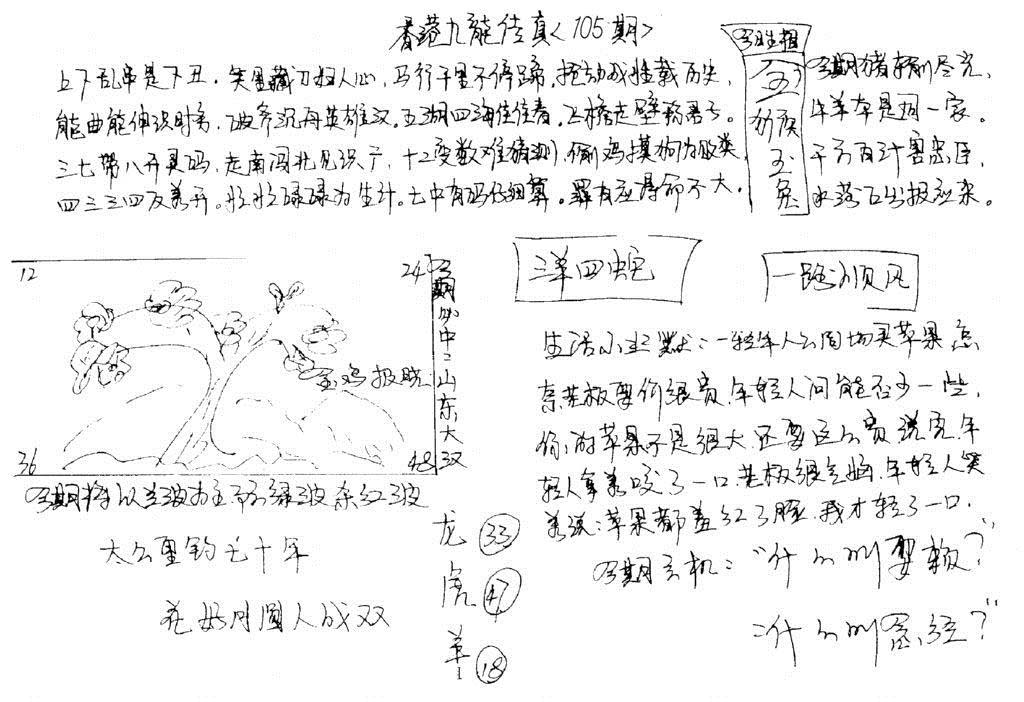 香港九龍传真<105期>
上下乱串是下丑。笑里藏刀扫人心,马行千里不停蹄。
能曲能伸识时务,破斧沉舟英雄汉。五湖四海任往春。
三七带八开灵码,走南闯北见识广,十二变数难猜测,偷鸡摸狗为败类,
四三三四反着开。忙忙碌碌为生计。七中有码仔细算。罪有应得命不大,
今期生相
玉兔
今期猪
牛羊本是同一家。
千方百计害忠臣,
水落石出报应来。
12
24
36
48
金鸡报晓
今期必中:山东大汉
三羊四蛇
一路顺风
生活小幽默:一轻年人公园场买苹果
老板要价很贵,年轻人问能否少一些,
你的苹果不是很大还要这么贵说完年
轻人拿着咬了一口老板很气恼,年轻人笑
着说:苹果都羞红了脸,我才轻了一口.
今期玄机:"什么叫耍赖?"
"什么叫
今期特以兰波为主
绿波
红波
太公垂钓七十年
花好月圆人成双
龙 33
虎 47
羊 18